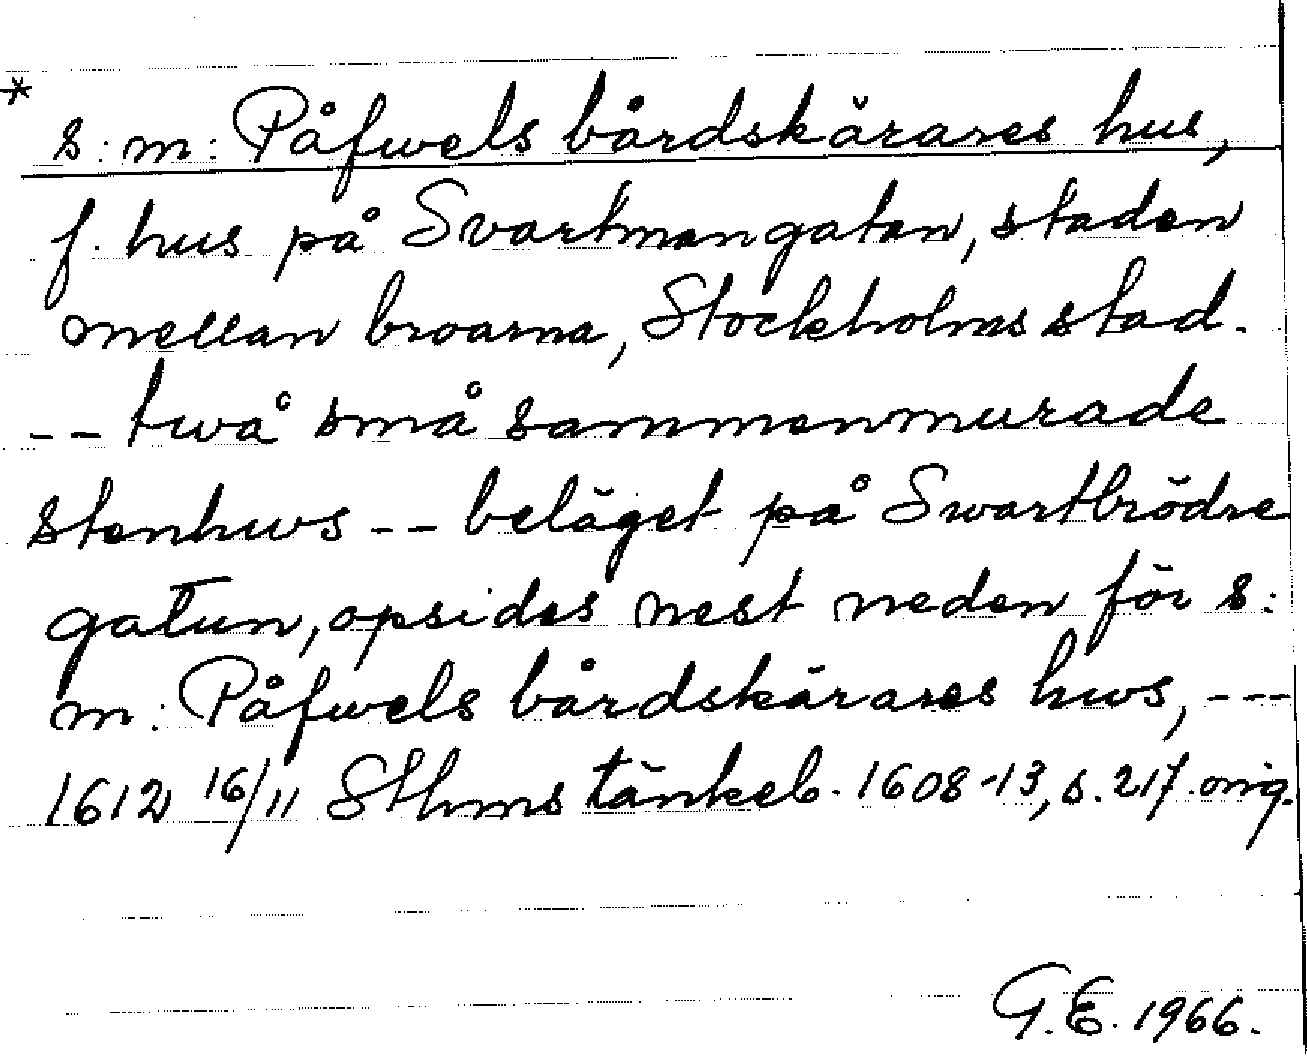 * s:m: Påfwels bårdskärares hus,
f. hus på Svartmangatan, staden
mellan broarna, Stockholms stad.
-- twå små sammanmurade
stenhws -- beläget på Swartbrödre
gatun, opsides nest neden för s:
m: Påfwels bårdskärares hws, ---
1612 16/11 Sthms tänkeb. 1608-13, s. 217. orig.
G.E. 1966.